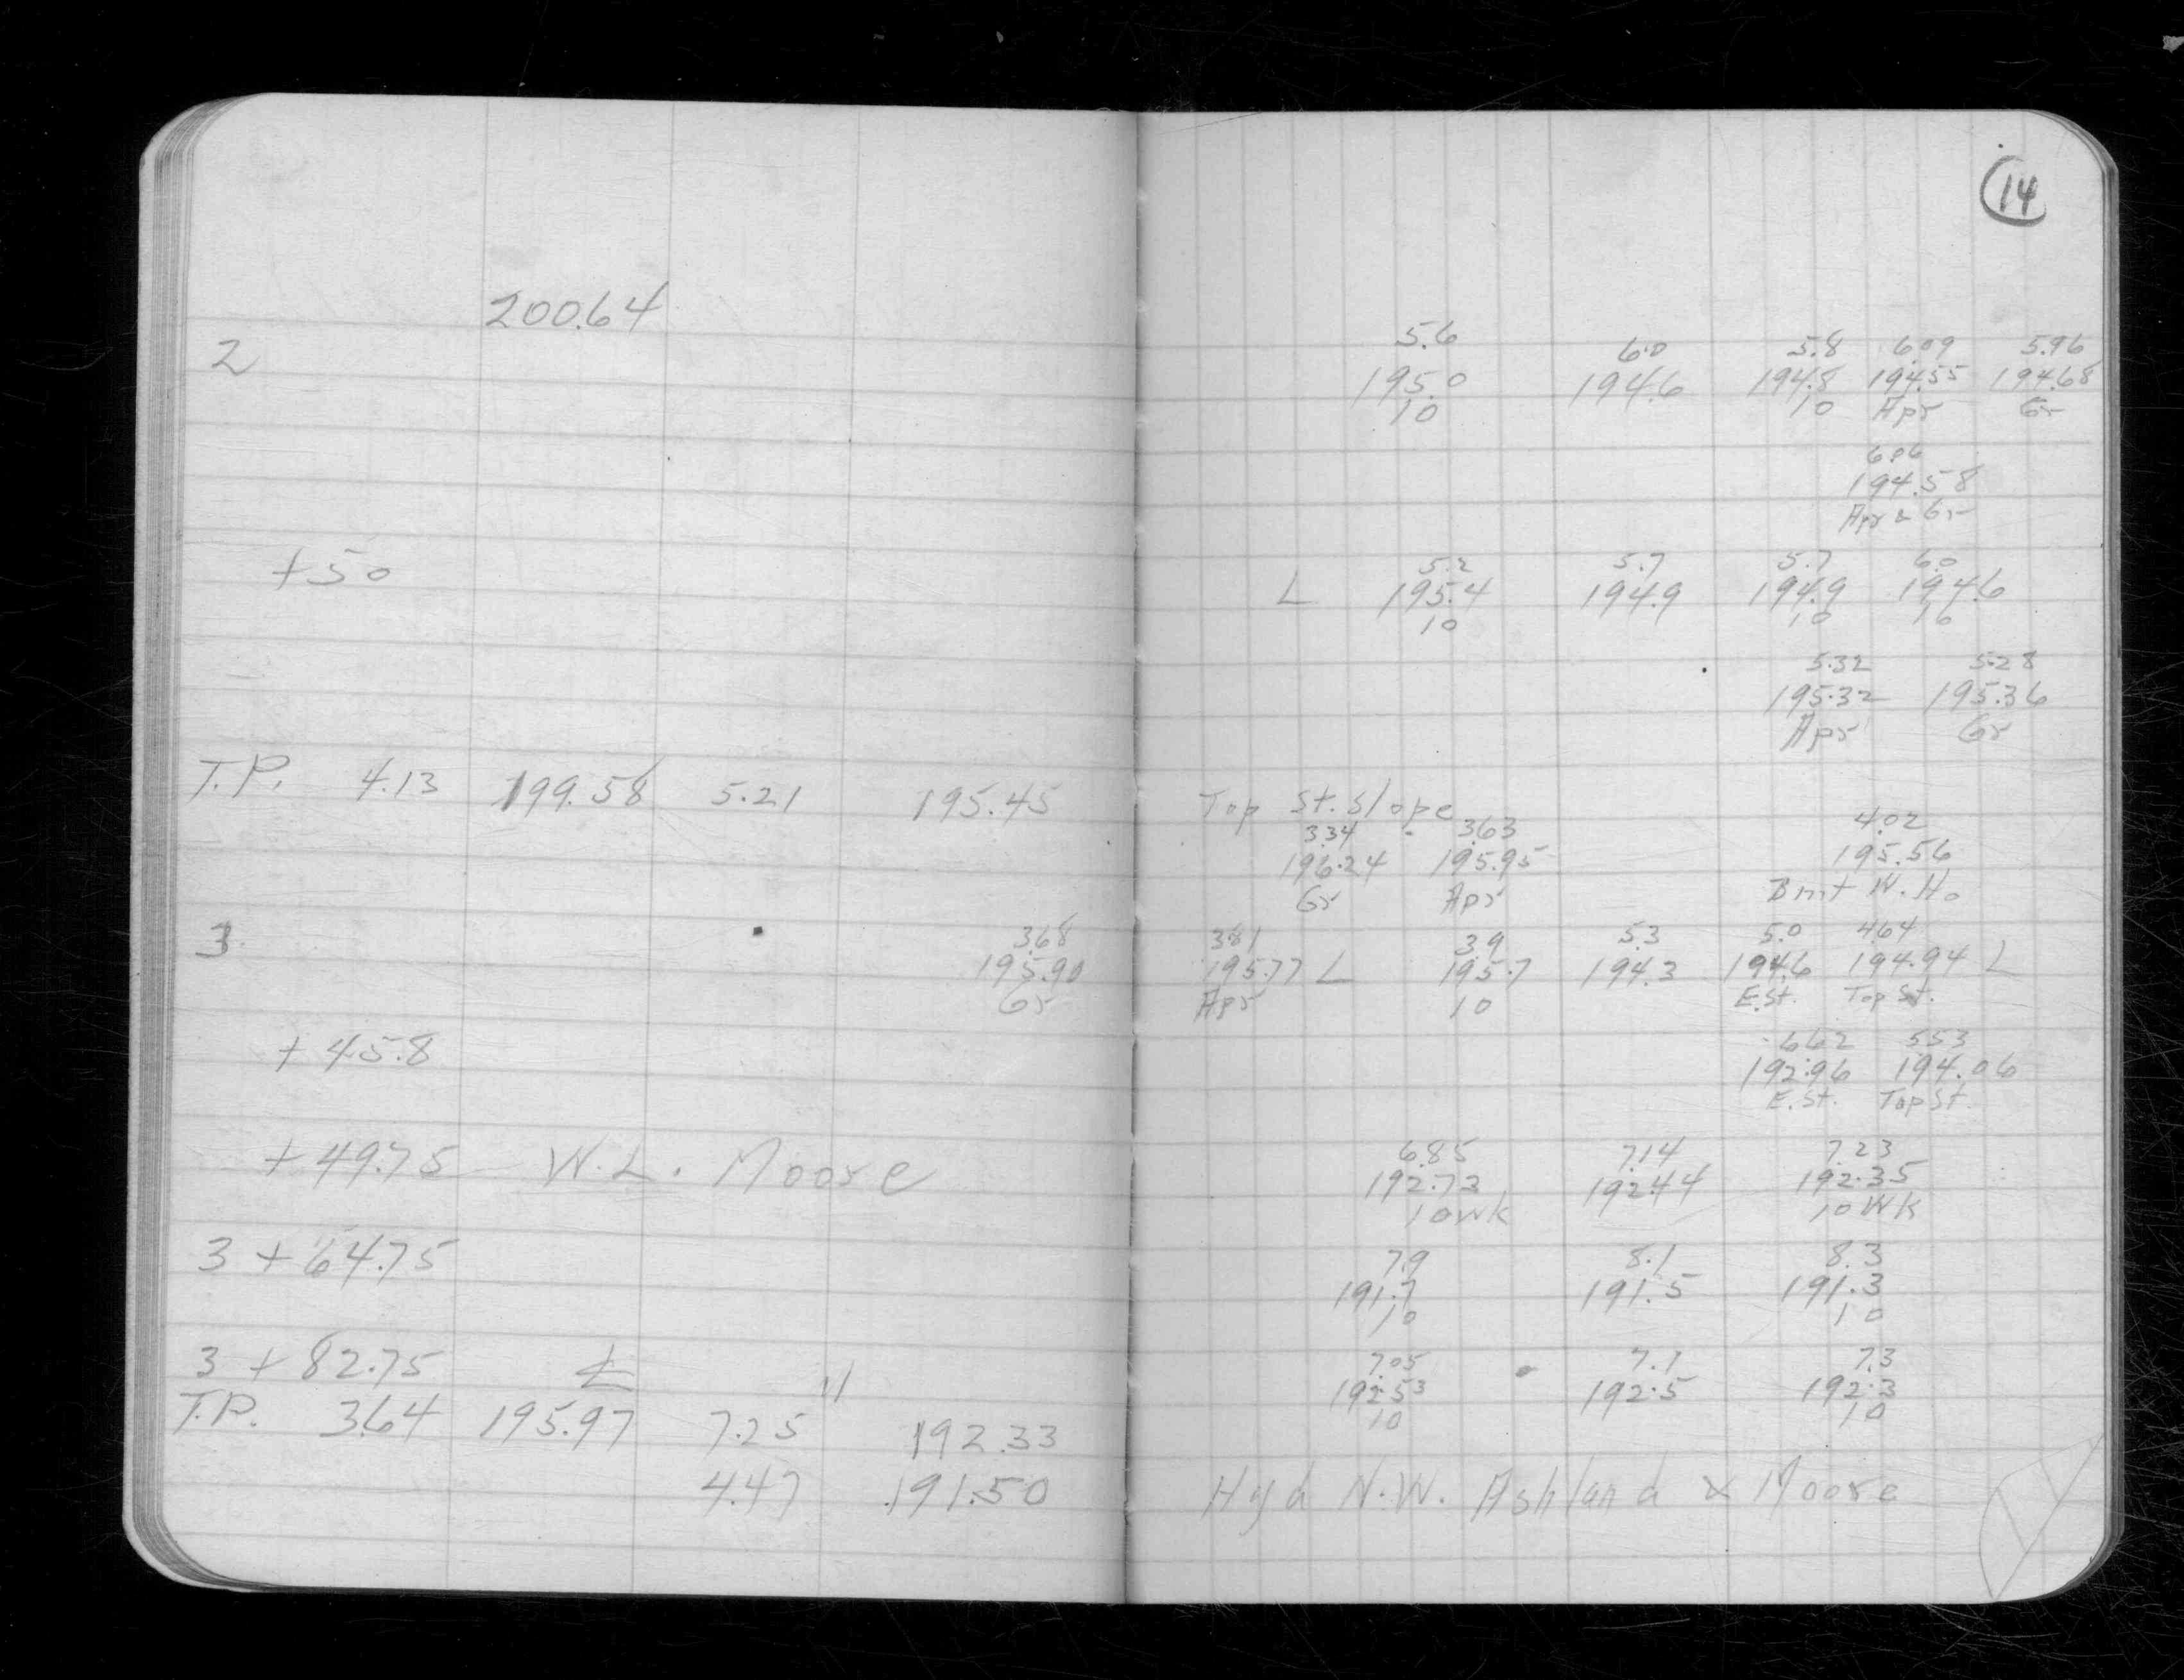 14
200.64
5.6 6.0 5.8 6.09 5.96
2 195.0 194.6 194.8 194.55 194.68
10 10 Apr Gr
6.06
194.58
Apr & Gr
5.2 5.7 5.7 6.0
+50 L 195.4 194.9 194.9 194.6
10 10 16
5.32 5.28
195.32 195.36
Apr Gr
T.P. 4.13 199.58 5.21 195.45 Top St. Slope
3.34 3.63 4.02
196.24 195.95 195.56
Gr Apr Bmt W. Ho
3.68 3.81 3.9 5.3 5.0 4.64
3 195.90 195.77 L 195.7 194.3 194.6 194.94 L
Gr Apr 10 E.St. Top St.
6.62 5.53
+45.8 192.96 194.06
E.St. Top St.
6.85 7.14 7.23
+49.75 W.L. Moore 192.73 192.44 192.35
10 WK 10 WK
7.9 8.1 8.3
3+64.75 191.7 191.5 191.3
10 10
7.05 7.1 7.3
3+82.75 ℄ " 192.53 192.5 192.3
10 10
T.P. 3.64 195.97 7.25 192.33
4.47 191.50 Hyd N.W. Ashland & Moore